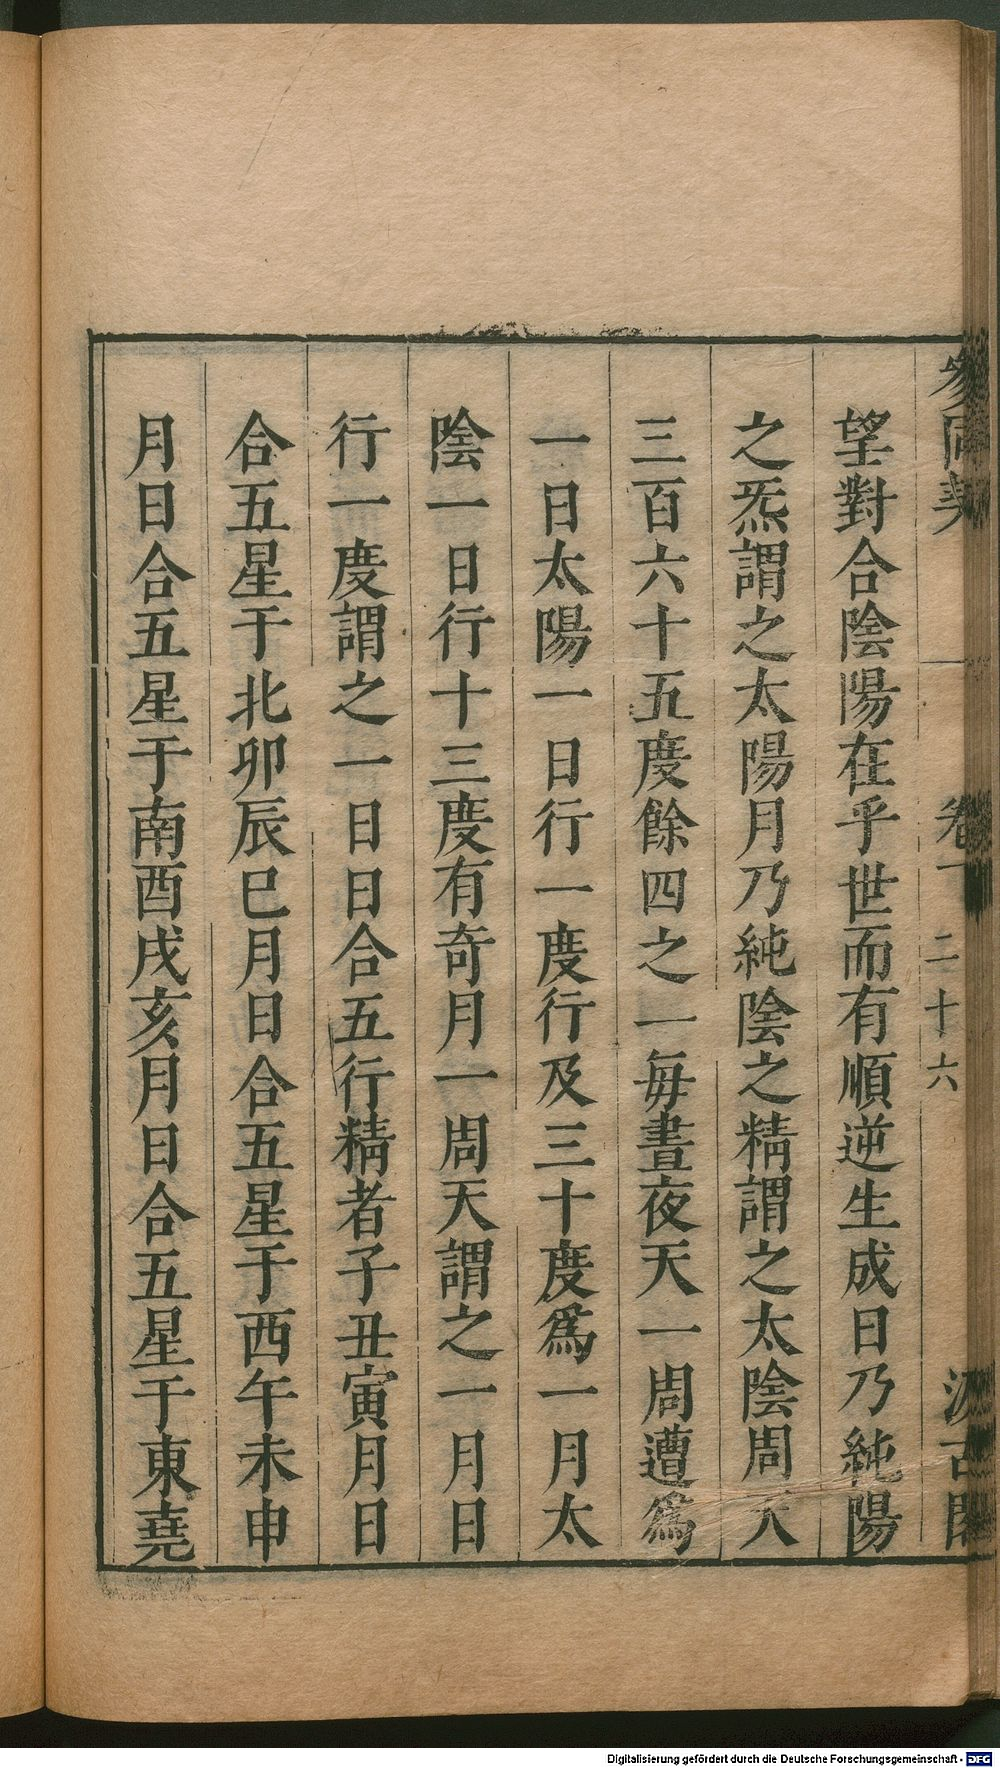 參同契 卷一 二十六 汲古閣
望對合陰陽在乎世而有順逆生成日乃純陽
之炁謂之太陽月乃純陰之精謂之太陰周天
三百六十五度餘四之一每晝夜天一周遭爲
一日太陽一日行一度行及三十度爲一月太
陰一日行十三度有奇月一周天謂之一月日
行一度謂之一日日合五行精者子丑寅月日
合五星于北卯辰巳月日合五星于西午未申
月日合五星于南酉戌亥月日合五星于東堯
Digitalisierung gefördert durch die Deutsche Forschungsgemeinschaft - DFG